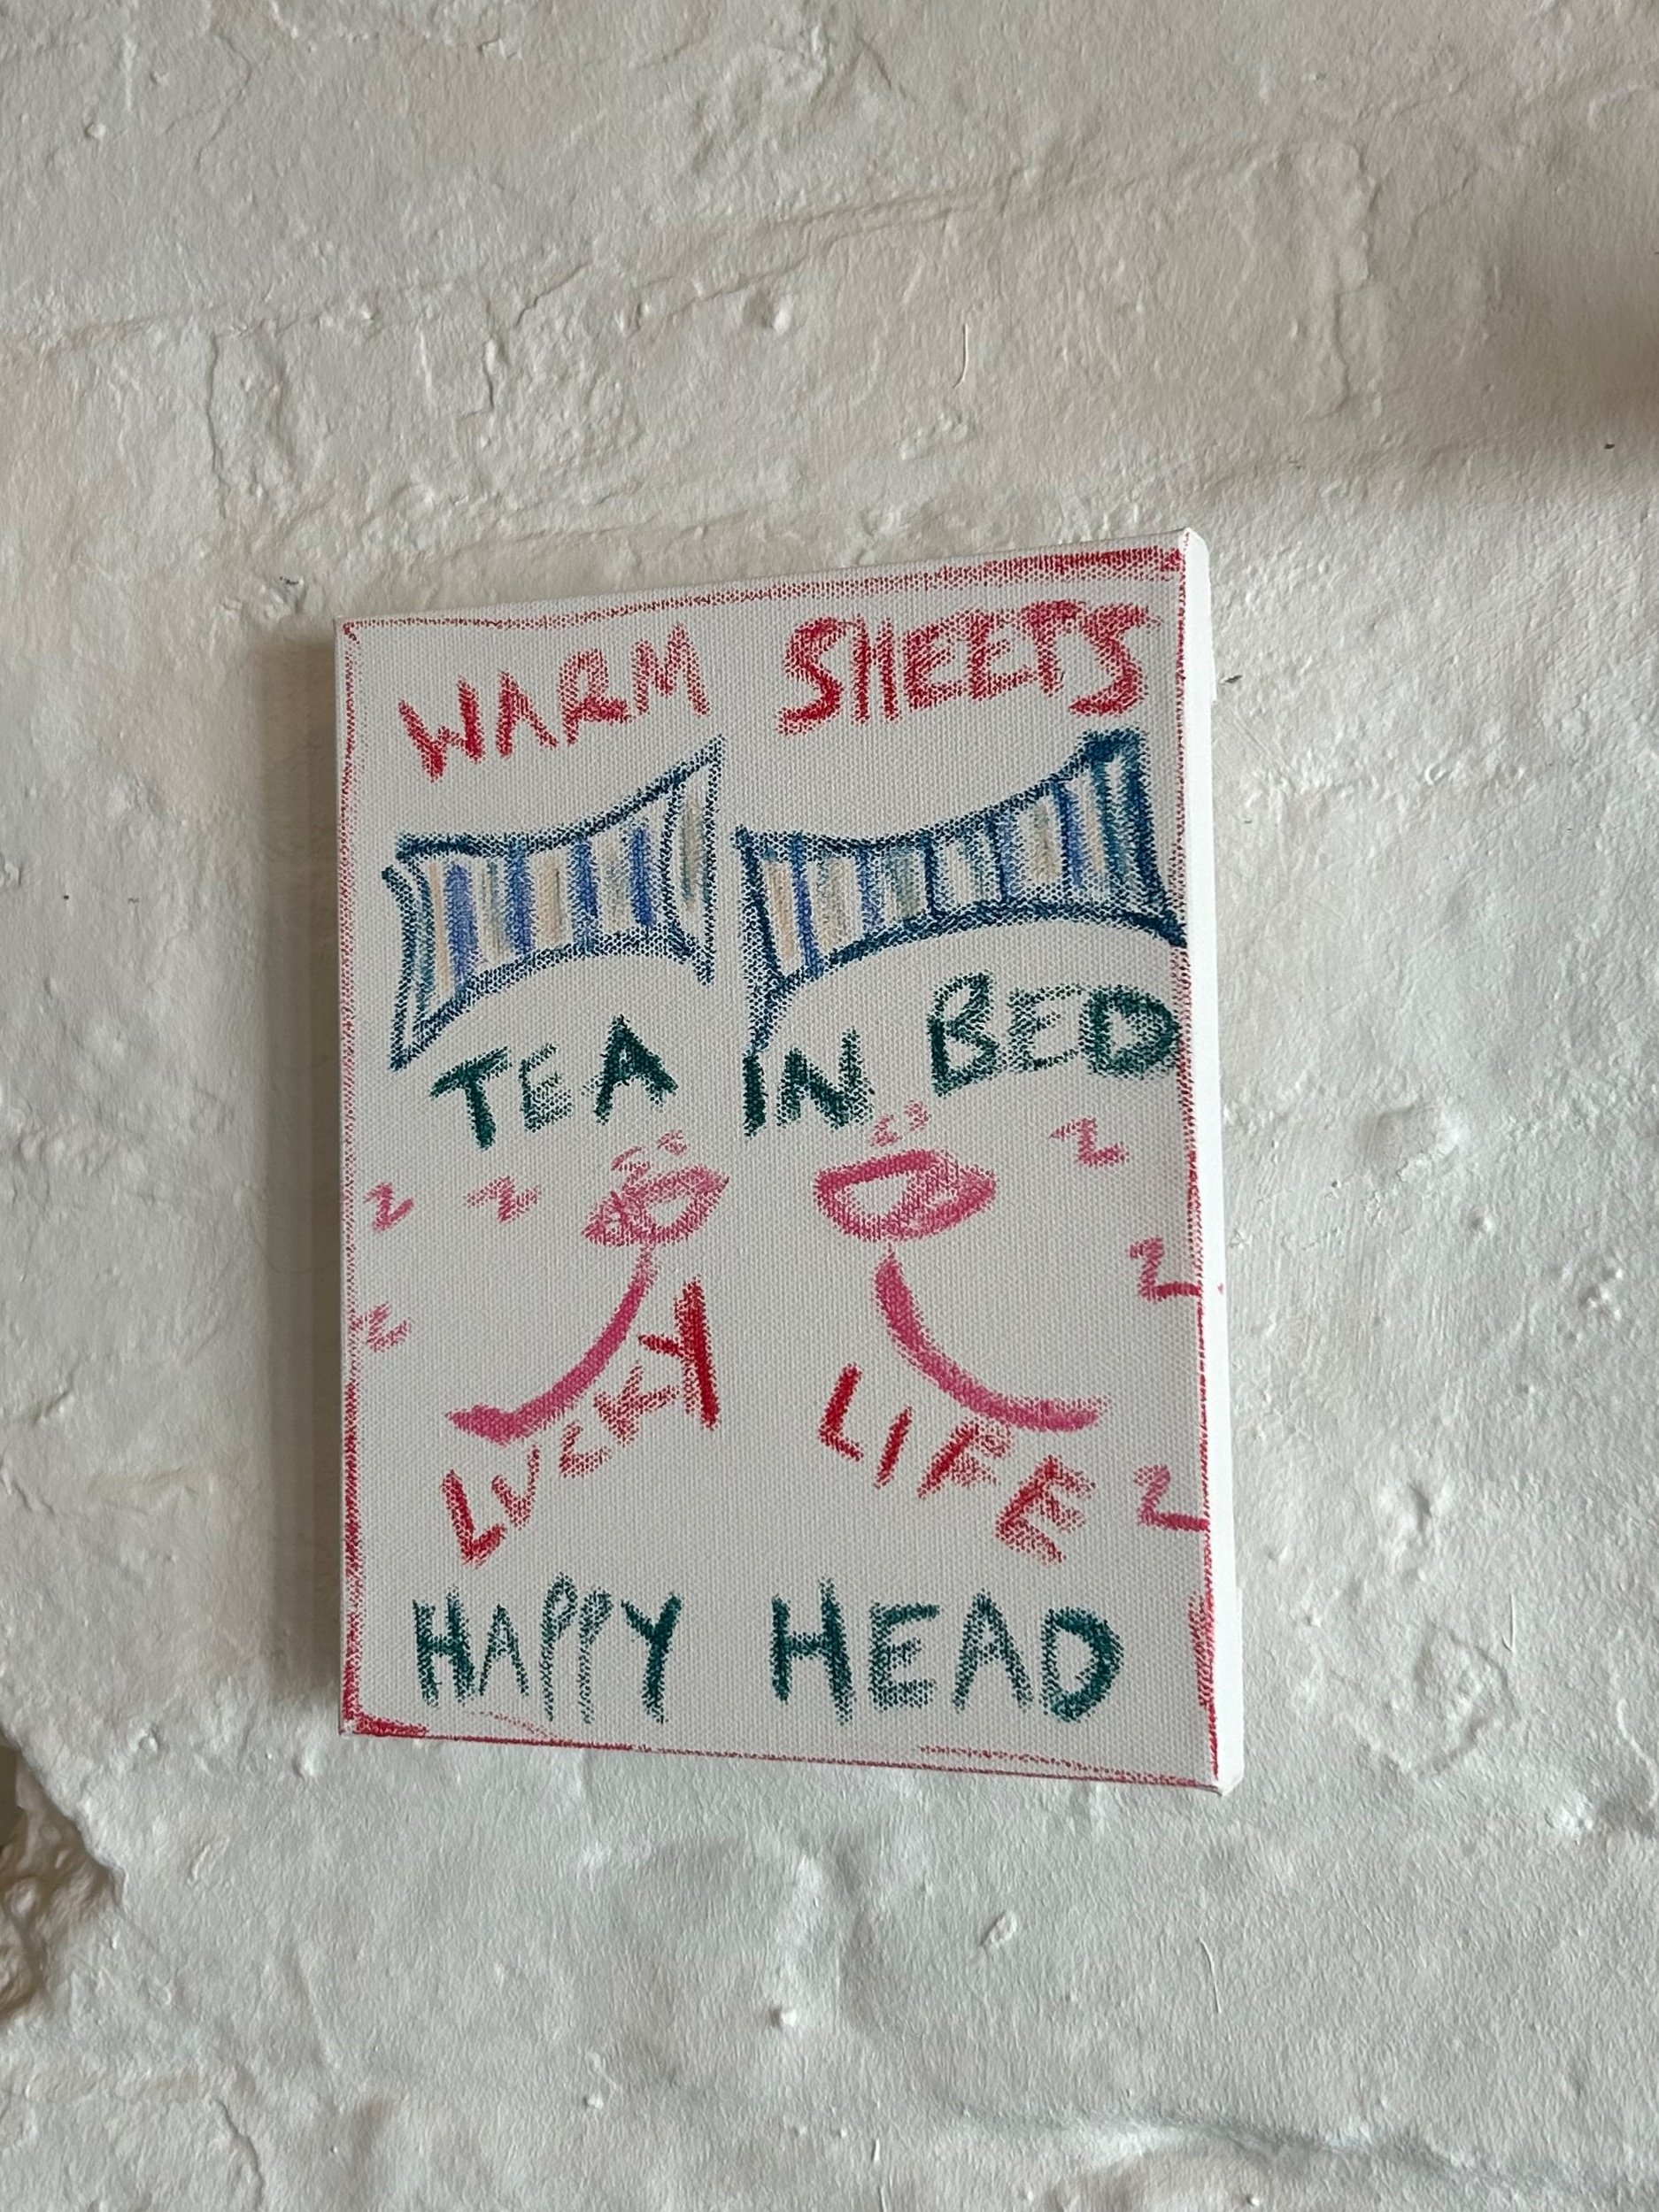 WARM SHEETS
TEA IN BED
Z Z Z
Z
Z
LUCKY LIFE Z
HAPPY HEAD